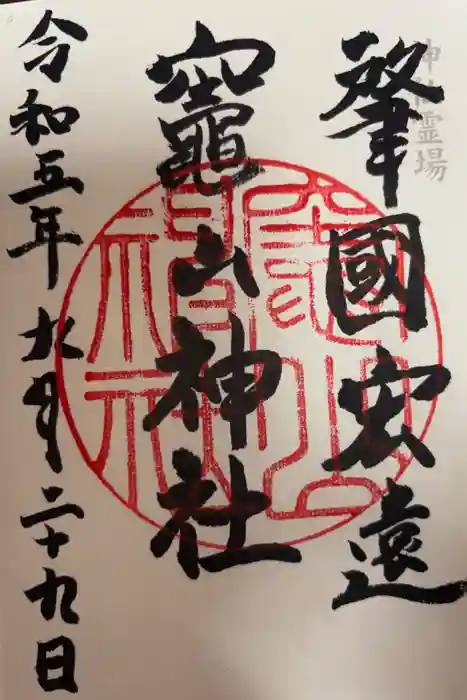 神仏霊場
肇國宏遠
竈山神社
竈山神社
令和五年九月二十九日